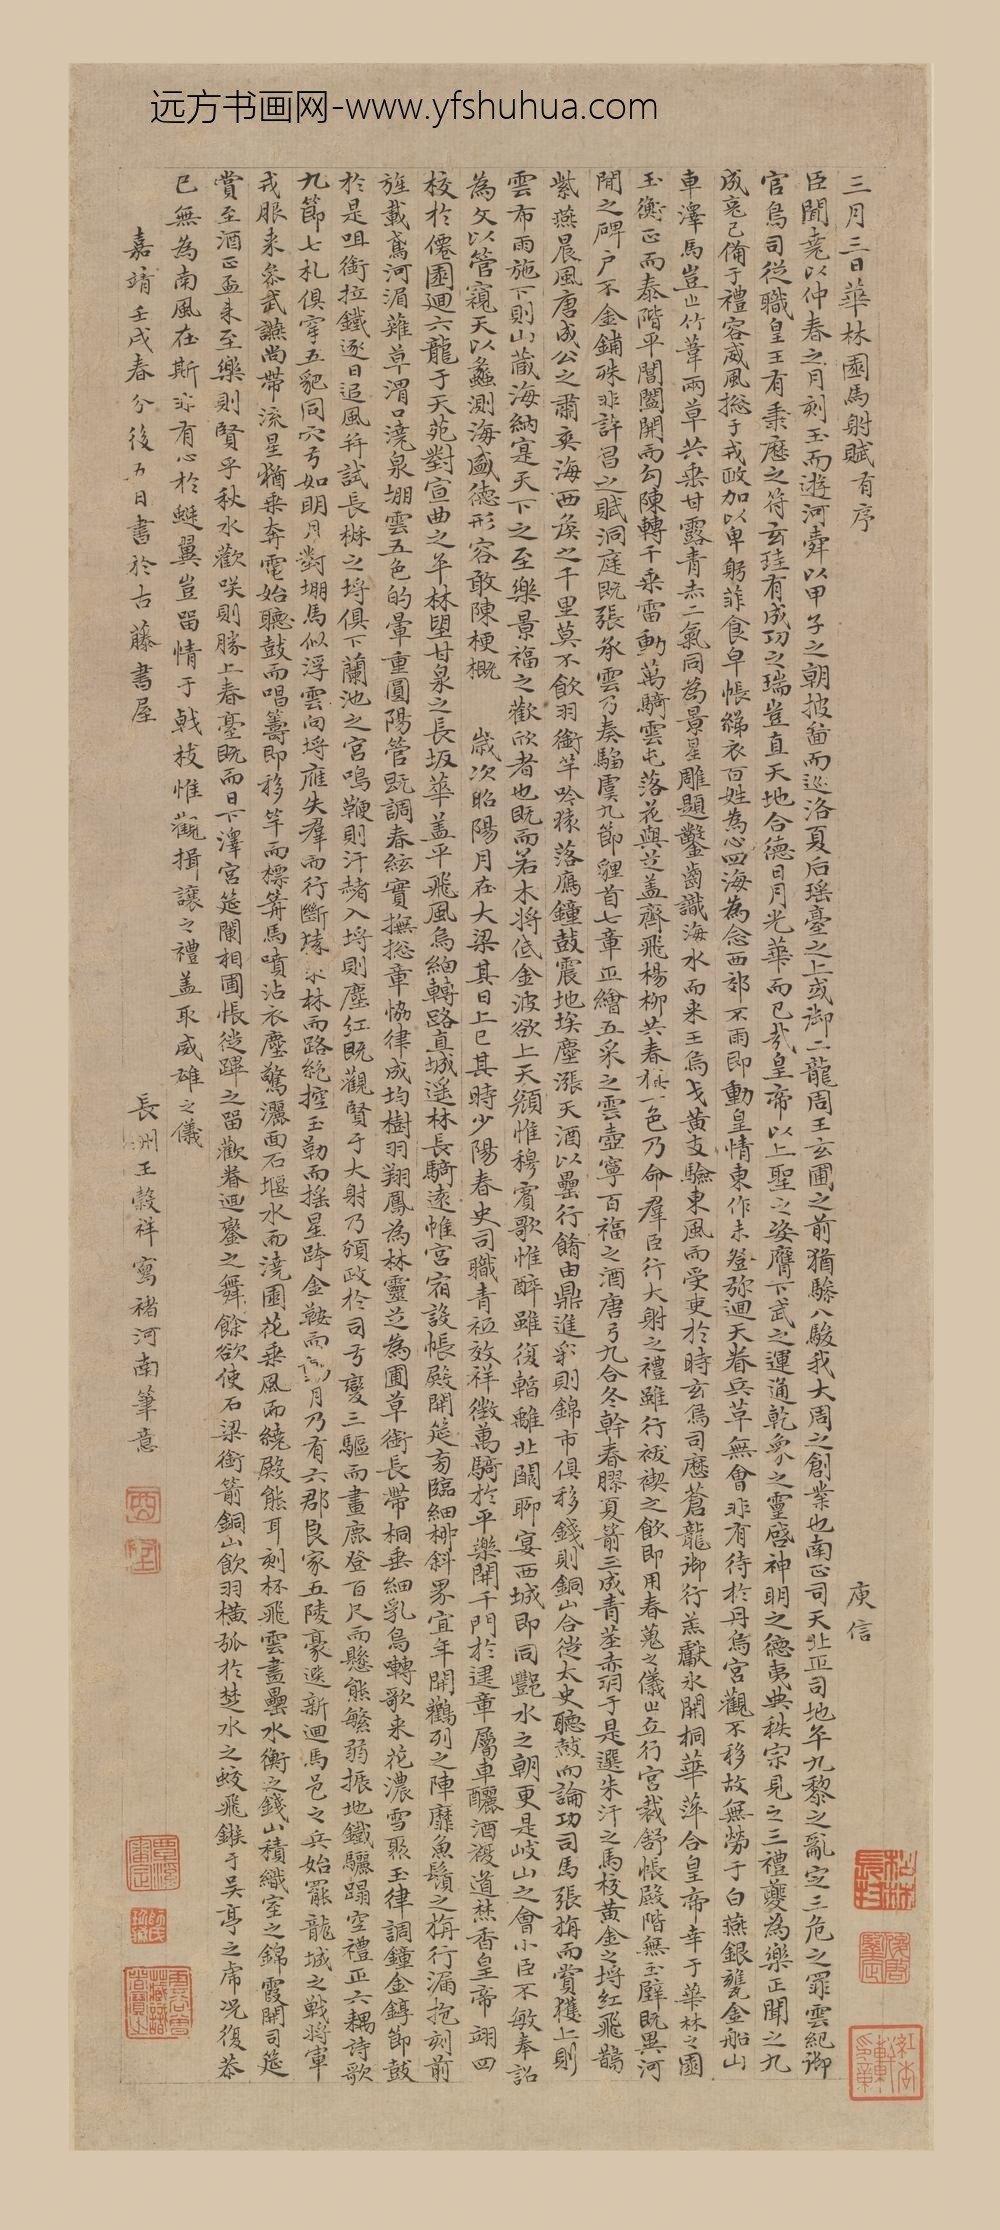 远方书画网-www.yfshuhua.com
三月三日華林園馬射賦有序 庾信
臣聞堯以仲春之月刻玉而遊河舜以甲子之朝披啚而巡洛夏后瑶臺之上或御二龍周王玄圃之前猶驂八駿我大周之創業也南正司天北正司地平九黎之亂定三危之罪雲紀御
官鳥司從職皇王有秉曆之符玄珪有成功之瑞豈直天地合德日月光華而已哉皇帝以上聖之姿膺下武之運通乾象之靈啓神明之德夷典秩宗見之三禮夔為樂正聞之九
成克己備于禮容威風揔于戎政加以卑躬菲食皁帳綈衣百姓為心四海為念西郊不雨即動皇情東作未登弥迴天眷兵革無會非有待於丹烏宮觀不移故無勞于白燕銀甕金船山
車澤馬豈止竹葦兩草共秉甘露青赤二氣同為景星雕題鑿齒識海水而来王烏弋黄支驗東風而受吏於時玄鳥司曆蒼龍御行羔獻氷開桐華萍合皇帝幸于華林之園
玉衡正而泰階平閶闔開而勾陳轉千乘雷動萬騎雲屯落花與芝盖齊飛楊柳共春旗一色乃命羣臣行大射之禮雖行祓禊之飲即用春蒐之儀止立行宮裁舒帳殿階無玉璧既異河
閒之碑户不金鋪殊非許昌之賦洞庭既張承雲乃奏騶虞九節貍首七章正繪五采之雲壺寧百福之酒唐弓九合冬幹春膠夏箭三成青莖赤羽于是選朱汗之馬校黄金之埒紅飛鵲
紫燕晨風唐成公之肅爽海西矦之千里莫不飲羽銜竿吟猿落鴈鐘鼓震地埃塵漲天酒以罍行餚由鼎進采則錦市俱移錢則銅山合從太史聽鼓而論功司馬張旃而賞獲上則
雲布雨施下則山藏海納寔天下之至樂景福之歡欣者也既而若木将低金波欲上天顔惟穆賓歌惟醉雖復暫離北闕聊宴西城即同酆水之朝更是岐山之會小臣不敏奉詔
為文以管窺天以蠡測海盛德形容敢陳梗概 歲次昭陽月在大梁其日上巳其時少陽春史司職青祗效祥徵萬騎於平樂開千門於建章屬車釃酒複道焚香皇帝翊四
校於僊園迴六龍于天苑對宣曲之平林望甘泉之長坂華盖平飛風烏細轉路直城遥林長騎遠帷宮宿設帳殿開筵旁臨細柳斜界宜年開鸛列之陣靡魚鬚之旃行漏抱刻前
旌載鳶河湄薙草渭口澆泉堋雲五色的暈重圓陽管既調春絃實撫揔章恊律成均樹羽翔鳳為林靈芝為圃草銜長帶桐垂細乳鳥囀歌来花濃雪聚玉律調鐘金錞節鼓
於是咀銜拉鐵逐日追風并試長楸之埒俱下蘭池之宮鳴鞭則汗赭入埒則塵紅既觀賢于大射乃頒政於司弓變三驅而畫鹿登百尺而懸熊繁弱振地鐵驪蹋空禮正六耦詩歌
九節七札俱穿五豝同穴弓如明月對堋馬似浮雲向埒雁失羣而行斷猿求林而路絶控玉勒而摇星跨金鞍而動月乃有六郡良家五陵豪選新迴馬邑之兵始罷龍城之戰将軍
戎服来參武讌尚帶流星猶乗奔電始聽鼓而唱籌即移竿而標箭馬噴沾衣塵驚灑面石堰水而澆園花乗風而繞殿熊耳刻杯飛雲畫罍水衡之錢山積織室之錦霞開司筵
賞至酒正盃来至樂則賢乎秋水歡咲則勝上春臺既而日下澤宮筵闌相圃悵從蹕之留歡眷迴鑾之舞餘欲使石梁銜箭銅山飲羽横弧於楚水之蛟飛鏃于吴亭之虎况復恭
已無為南風在斯非有心於蜓翼豈留情于戟枝惟觀揖讓之禮盖取威雄之儀
嘉靖壬戌春分後五日書於古藤書屋 長洲王榖祥寫褚河南筆意